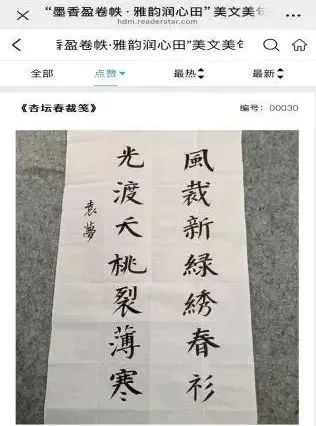 “墨香盈卷帙·雅韵润心田”美文美
hdm.readerstar.com
香盈卷帙·雅韵润心田”美文美句
全部 点赞 最热 最新
《杏坛春裁笺》 编号：D0030
風裁新緑綉春衫
光渡夭桃裂薄寒
袁夢